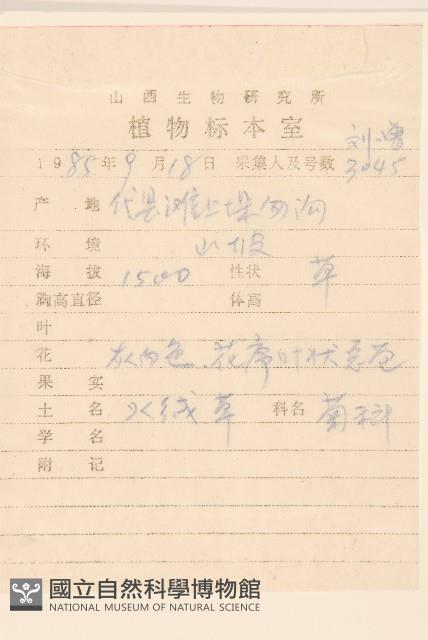 山西生物研究所
植物标本室
刘 曾
1985年9月18日 采集人及号数 3045
产地 代县滩上
环境 山坡
海拔 1500 性状 草
胸高直径 体高
叶
花 灰白色、花序叶状
果实
土名 火绒草 科名 菊科
学名
附记
國立自然科學博物館
NATIONAL MUSEUM OF NATURAL SCIENCE